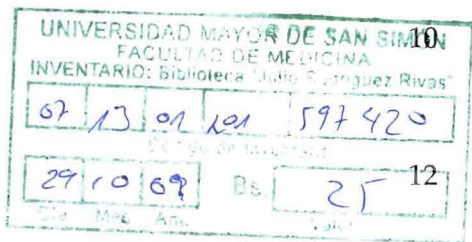 UNIVERSIDAD MAYOR DE SAN SIMÓN 10
FACULTAD DE MEDICINA
INVENTARIO: Biblioteca "Julio Rodriguez Rivas"
07 13 01 101 597420
Código de Inventario
29 10 09 Bs. 25 12
Día Mes Año Valor